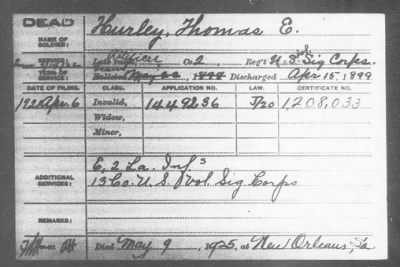 DEAD
NAME OF SOLDIER: Hurley, Thomas E.
Co. 2, Reg't U.S. Vol Sig Corps.
TERM OF SERVICE: Enlisted May 1898 Discharged Apr 15, 1899
DATE OF FILING. CLASS. APPLICATION NO. LAW. CERTIFICATE NO.
Apr. 6 Invalid, 1449236 J/20 1,208,033
Widow,
Minor,
ADDITIONAL SERVICES: E, 2 La. Inf
13 Co. U.S. Vol Sig Corps
REMARKS:
Died May 9, 1925, at New Orleans, La